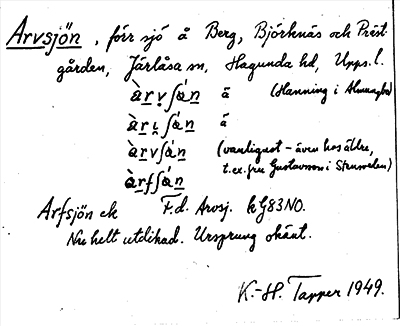 Arvsjön, förr sjö å Berg, Björknäs och Präst-
gården, Järlåsa sn, Hagunda hd, Upps. l.
àrvʃán ä (Hanning i Almunge)
àrvʃán á
àrvʃán (vanligast – även hos äldre,
àrfʃán t.ex. fru Gustavsson i
Arfsjön ek F.d. Arvsj. k G83NO.
Nu helt utdikad. Ursprung okänt.
K.-H. Tapper 1949.